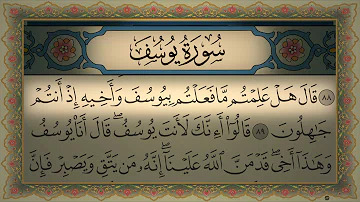 سُورَةُ يُوسُفَ
٨٨ قَالَ هَلْ عَلِمْتُم مَّا فَعَلْتُم بِيُوسُفَ وَأَخِيهِ إِذْ أَنتُمْ
جَٰهِلُونَ ٨٩ قَالُوٓا۟ أَءِنَّكَ لَأَنتَ يُوسُفُ ۖ قَالَ أَنَا۠ يُوسُفُ
وَهَٰذَآ أَخِى ۖ قَدْ مَنَّ ٱللَّهُ عَلَيْنَآ ۖ إِنَّهُۥ مَن يَتَّقِ وَيَصْبِرْ فَإِنَّ